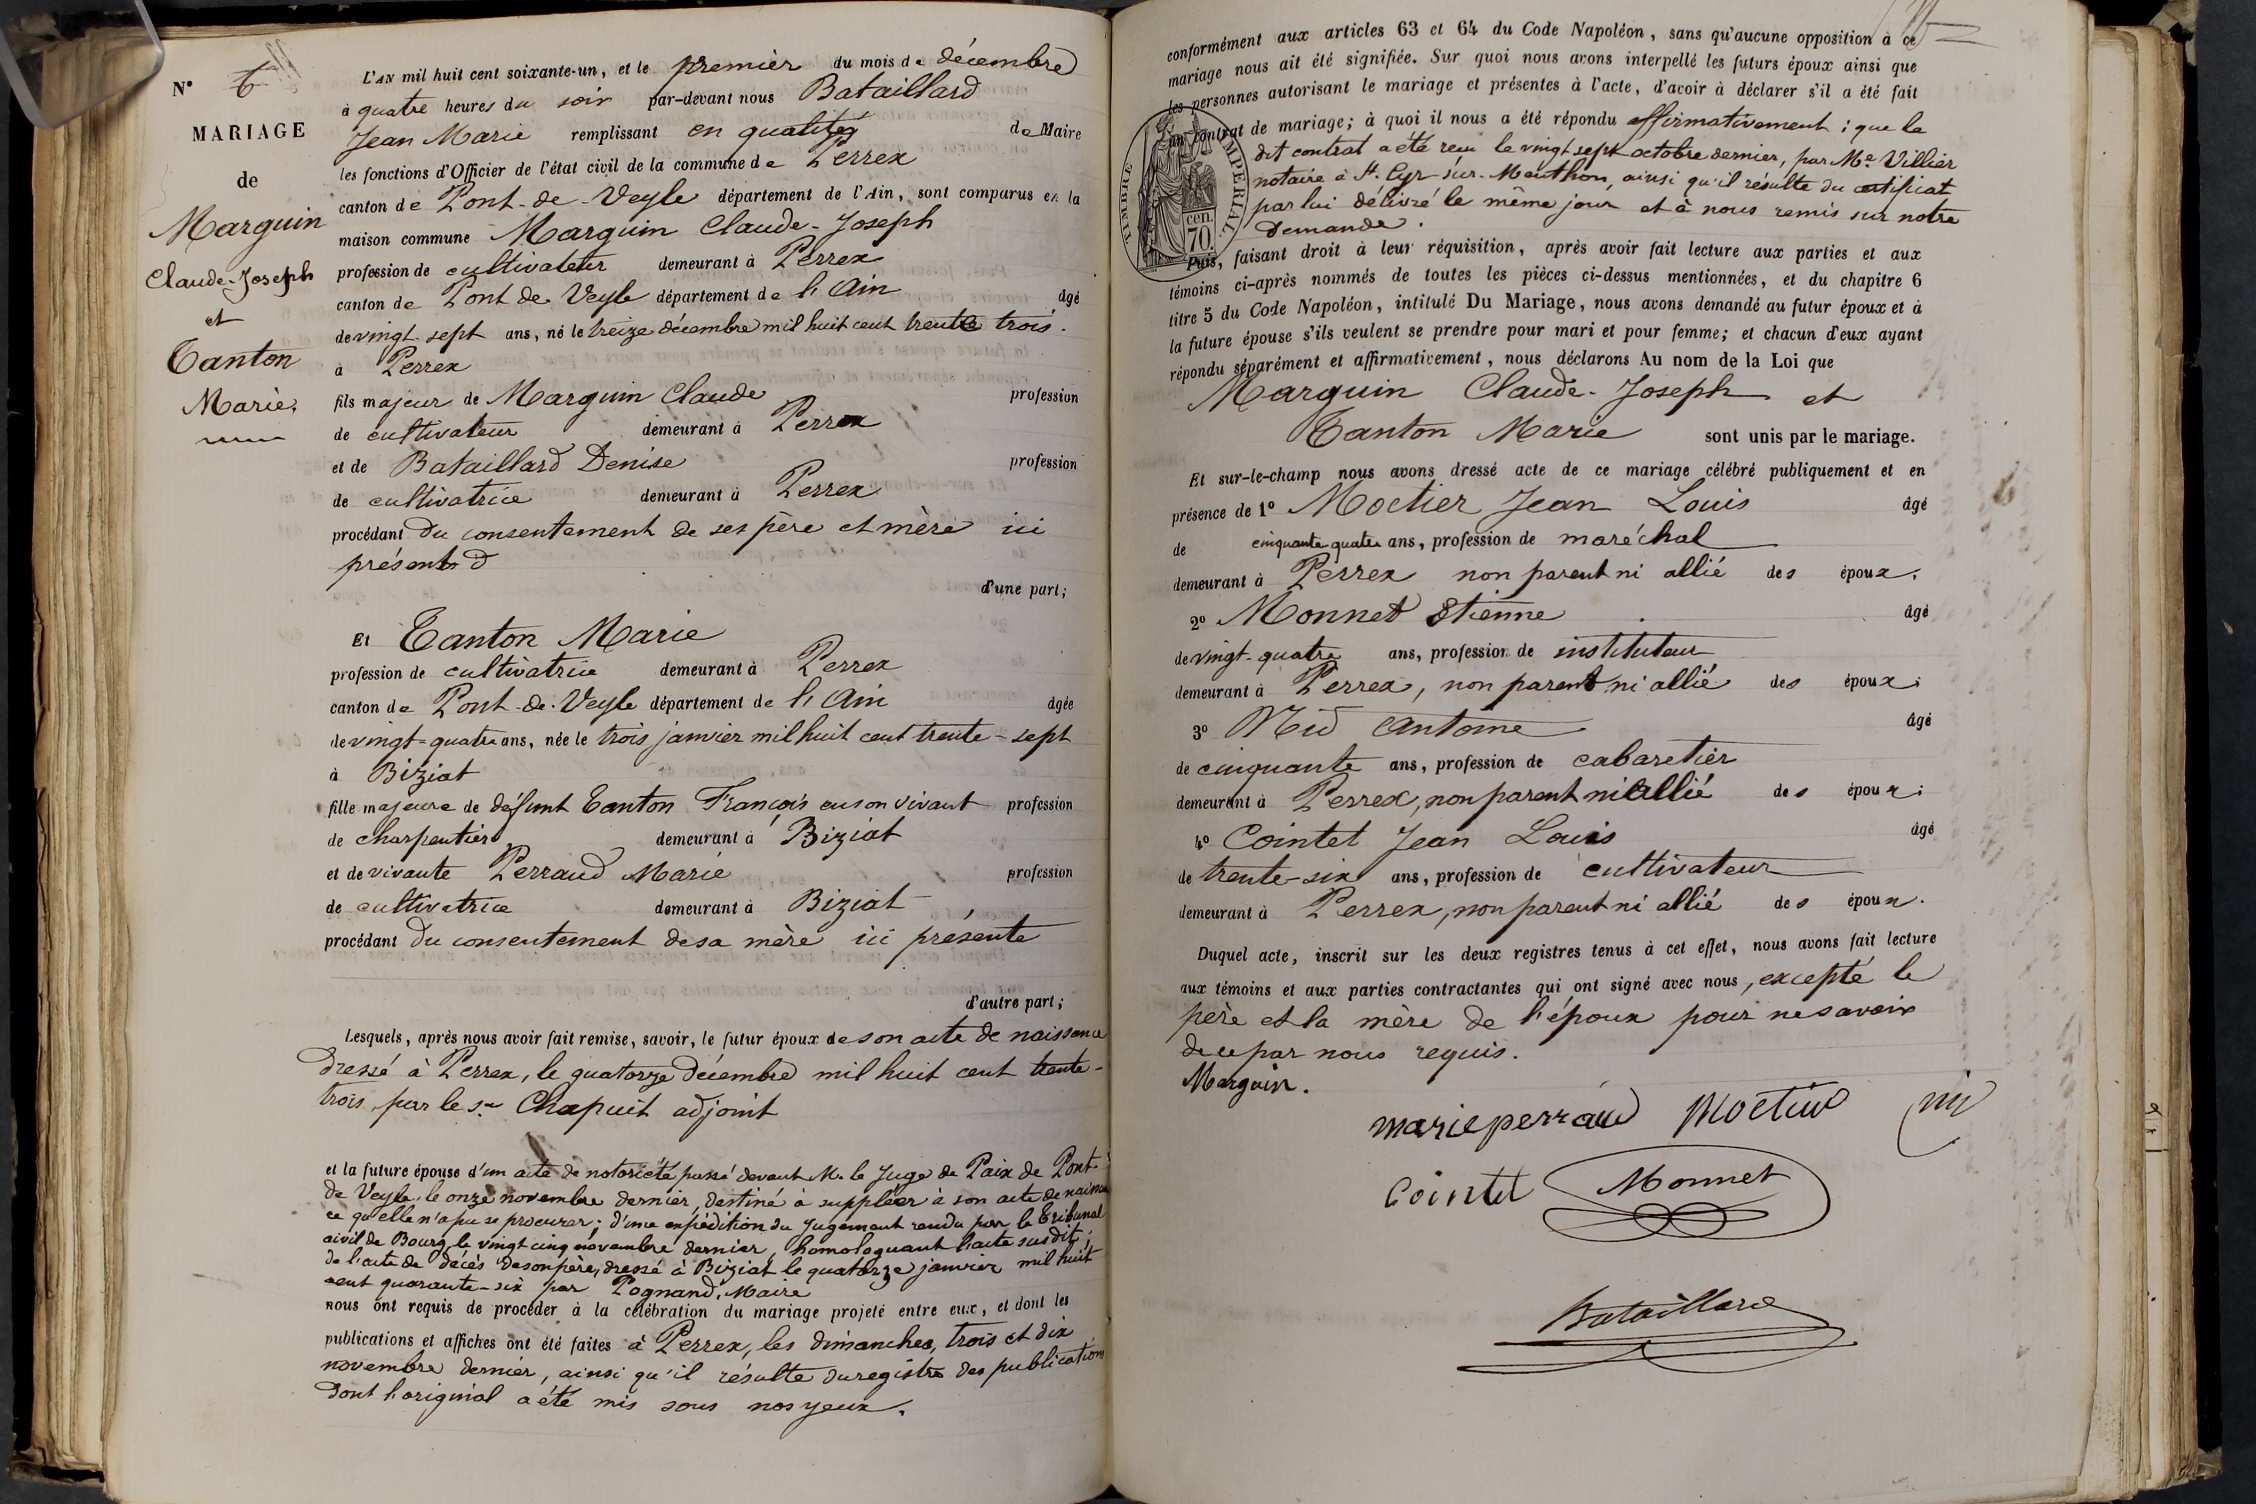 N° 6
MARIAGE
de
Marguin
Claude-Joseph
et
Tanton
Marie
L'AN mil huit cent soixante-un, et le premier du mois de décembre
à quatre heures du soir par-devant nous Bataillard
Jean Marie remplissant en qualité de Maire
les fonctions d'Officier de l'état civil de la commune de Perrex
canton de Pont-de-Veyle département de l'Ain, sont comparus en la
maison commune Marguin Claude-Joseph
profession de cultivateur demeurant à Perrex
canton de Pont de Veyle département de l'Ain âgé
de vingt-sept ans, né le treize décembre mil huit cent trente trois.
à Perrex
fils majeur de Marguin Claude profession
de cultivateur demeurant à Perrex
et de Bataillard Denise profession
de cultivatrice demeurant à Perrex
procédant du consentement de ses père et mère ici
présents
d'une part;
Et Tanton Marie
profession de cultivatrice demeurant à Perrex
canton de Pont-de-Veyle département de l'Ain âgée
de vingt-quatre ans, née le trois janvier mil huit cent trente-sept
à Biziat
fille majeure de défunt Tanton François en son vivant profession
de charpentier demeurant à Biziat
et de vivante Perraud Marie profession
de cultivatrice demeurant à Biziat
procédant du consentement de sa mère ici présente
d'autre part;
Lesquels, après nous avoir fait remise, savoir, le futur époux de son acte de naissance
dressé à Perrex, le quatorze décembre mil huit cent trente-
trois par le sr Chapuit adjoint
et la future épouse d'un acte de notoriété passé devant M. le Juge de Paix de Pont-
de Veyle, le onze novembre dernier, destiné à suppléer à son acte de naissan
ce qu'elle n'a pu se procurer; d'une expédition du Jugement rendu par le Tribunal
civil de Bourg le vingt cinq novembre dernier, homologuant l'acte susdit;
de l'acte de décès de son père, dressé à Biziat le quatorze janvier mil huit
cent quarante-six par Pognand, Maire
nous ont requis de procéder à la célébration du mariage projeté entre eux, et dont les
publications et affiches ont été faites à Perrex, les dimanches, trois et dix
novembre dernier, ainsi qu'il résulte du registre des publications
dont l'original a été mis sous nos yeux.
conformément aux articles 63 et 64 du Code Napoléon, sans qu'aucune opposition à ce
mariage nous ait été signifiée. Sur quoi nous avons interpellé les futurs époux ainsi que
les personnes autorisant le mariage et présentes à l'acte, d'avoir à déclarer s'il a été fait
un contrat de mariage; à quoi il nous a été répondu affirmativement; que le
dit contrat a été reçu le vingt sept octobre dernier, par Me Villier
notaire à St. Cyr-sur-Menthon, ainsi qu'il résulte du certificat
par lui délivré le même jour et à nous remis sur notre
demande.
TIMBRE IMPERIAL
70 cen.
Puis, faisant droit à leur réquisition, après avoir fait lecture aux parties et aux
témoins ci-après nommés de toutes les pièces ci-dessus mentionnées, et du chapitre 6
titre 5 du Code Napoléon, intitulé Du Mariage, nous avons demandé au futur époux et à
la future épouse s'ils veulent se prendre pour mari et pour femme; et chacun d'eux ayant
répondu séparément et affirmativement, nous déclarons Au nom de la Loi que
Marguin Claude-Joseph et
Tanton Marie sont unis par le mariage.
Et sur-le-champ nous avons dressé acte de ce mariage célébré publiquement et en
présence de 1° Moctier Jean Louis âgé
de cinquante-quatre ans, profession de maréchal
demeurant à Perrex non parent ni allié des époux.
2° Monnet Etienne âgé
de vingt-quatre ans, profession de instituteur
demeurant à Perrex, non parent ni allié des époux.
3° Nid Antoine âgé
de cinquante ans, profession de cabaretier
demeurant à Perrex, non parent ni allié des époux.
4° Cointet Jean Louis âgé
de trente-six ans, profession de cultivateur
demeurant à Perrex, non parent ni allié des époux.
Duquel acte, inscrit sur les deux registres tenus à cet effet, nous avons fait lecture
aux témoins et aux parties contractantes qui ont signé avec nous, excepté le
père et la mère de l'époux pour ne savoir
de ce par nous requis.
Marguin.
marie perraud Moctier
Cointet Monnet
Bataillard